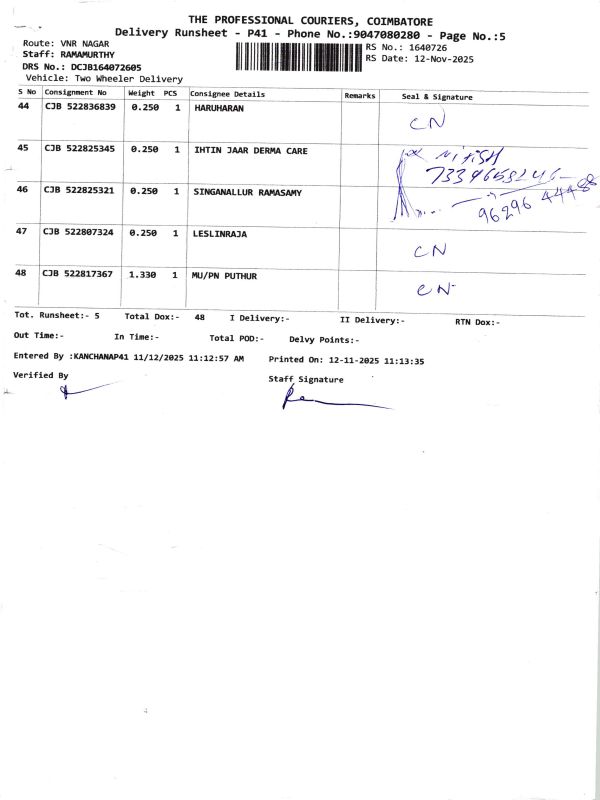 THE PROFESSIONAL COURIERS, COIMBATORE
Delivery Runsheet - P41 - Phone No.:9047080280 - Page No.:5
Route: VNR NAGAR
RS No.: 1640726
Staff: RAMAMURTHY
RS Date: 12-Nov-2025
DRS No.: DCJB164072605
Vehicle: Two Wheeler Delivery
S No Consignment No Weight PCS Consignee Details Remarks Seal & Signature
44 CJB 522836839 0.250 1 HARUHARAN
CN
45 CJB 522825345 0.250 1 IHTIN JAAR DERMA CARE
NITISH
46 CJB 522825321 0.250 1 SINGANALLUR RAMASAMY
96296 44488
47 CJB 522807324 0.250 1 LESLINRAJA
CN
48 CJB 522817367 1.330 1 MU/PN PUTHUR
CN
Tot. Runsheet:- 5 Total Dox:- 48 I Delivery:- II Delivery:- RTN Dox:-
Out Time:- In Time:- Total POD:- Delvy Points:-
Entered By :KANCHANAP41 11/12/2025 11:12:57 AM Printed On: 12-11-2025 11:13:35
Verified By Staff Signature